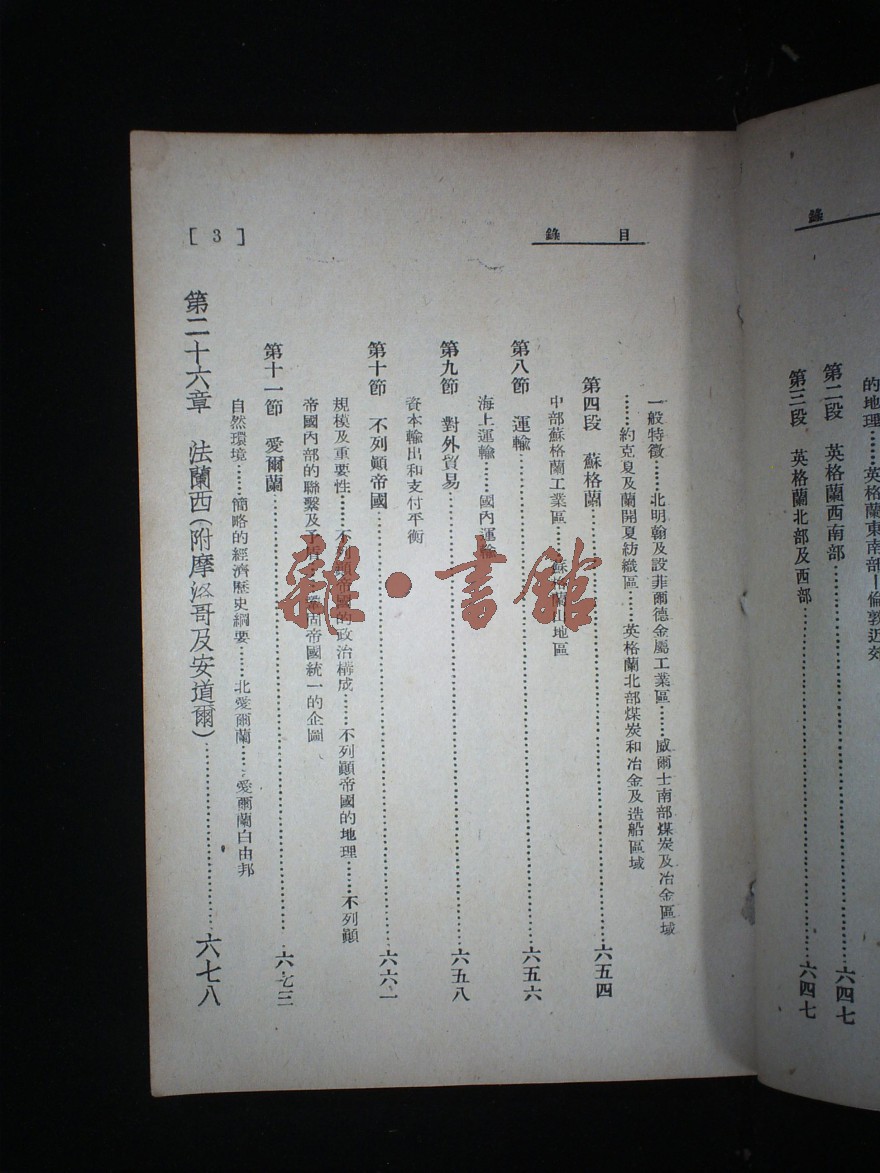 錄
的地理……英格蘭東南部—倫敦近郊
第二段　英格蘭西南部……六四七
第三段　英格蘭北部及西部……六四七
目　錄
[ 3 ]
一般特徵……北明翰及設菲爾德金屬工業區……威爾士南部煤炭及冶金區域
……約克夏及蘭開夏紡織區……英格蘭北部煤炭和冶金及造船區域
第四段　蘇格蘭……六五四
中部蘇格蘭工業區……蘇格蘭山地區
第八節　運輸……六五六
海上運輸……國內運輸
第九節　對外貿易……六五八
資本輸出和支付平衡
第十節　不列顛帝國……六六一
規模及重要性……不列顛帝國的政治構成……不列顛帝國的地理……不列顛
帝國內部的聯繫及矛盾……鞏固帝國統一的企圖
第十一節　愛爾蘭……六七三
自然環境……簡略的經濟歷史綱要……北愛爾蘭……愛爾蘭自由邦
第二十六章　法蘭西(附摩洛哥及安道爾)……六七八
雜·書館